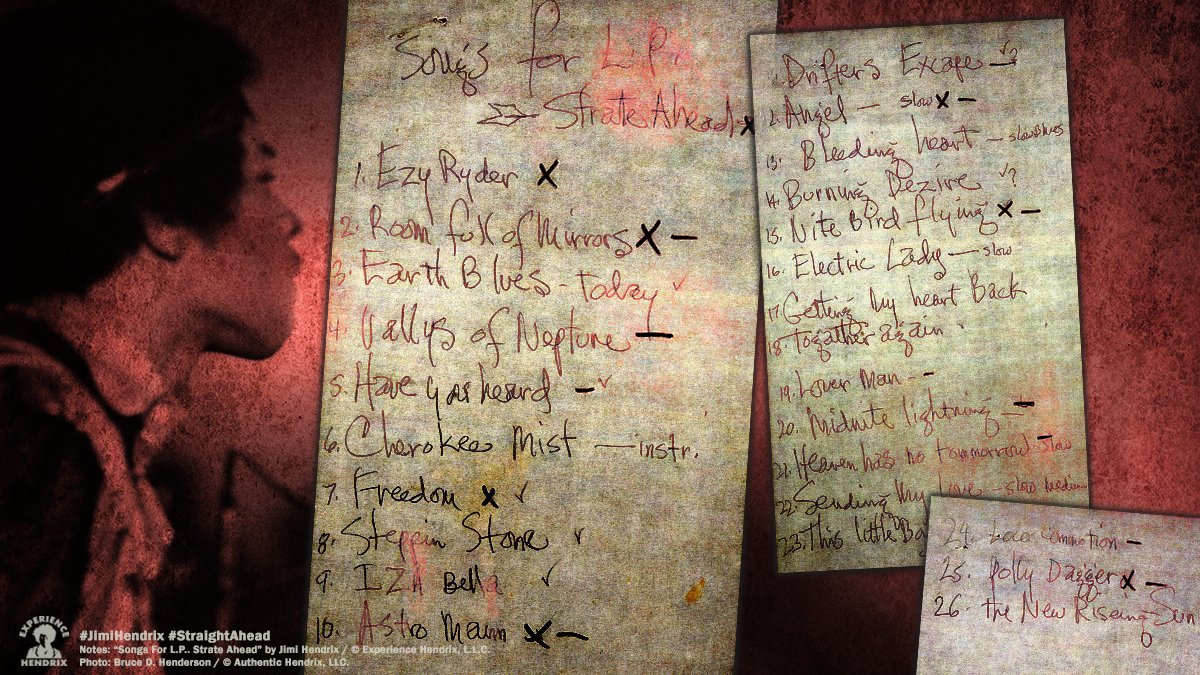 Songs for L.P.
Strate Ahead x
1. Ezy Ryder X
2. Room full of Mirrors X —
3. Earth Blues - Today ✓
4. Vallys of Neptune —
5. Have you heard — ✓
6. Cherokee Mist — instr.
7. Freedom x ✓
8. Steppin Stone ✓
9. IZA Bella ✓
10. Astro Mann X —
Drifters Escape — ✓?
2. Angel — slow x —
13. Bleeding heart — slow Blues
14. Burning Dezire ✓?
15. Nite Bird flying x —
16. Electric Lady — slow
17. Getting My heart Back
18. Together again
19. Lover Man - -
20. Midnite lightning —
21. Heaven has no tommorrow - slow
22. Sending My Love - slow medium
23. This little
24. Loco Commotion —
25. Dolly Dagger x —
26 the New Riseing Sun
EXPERIENCE
HENDRIX
#JimiHendrix #StraightAhead
Notes: “Songs For L.P.. Strate Ahead” by Jimi Hendrix / © Experience Hendrix, L.L.C.
Photo: Bruce D. Henderson / © Authentic Hendrix, LLC.